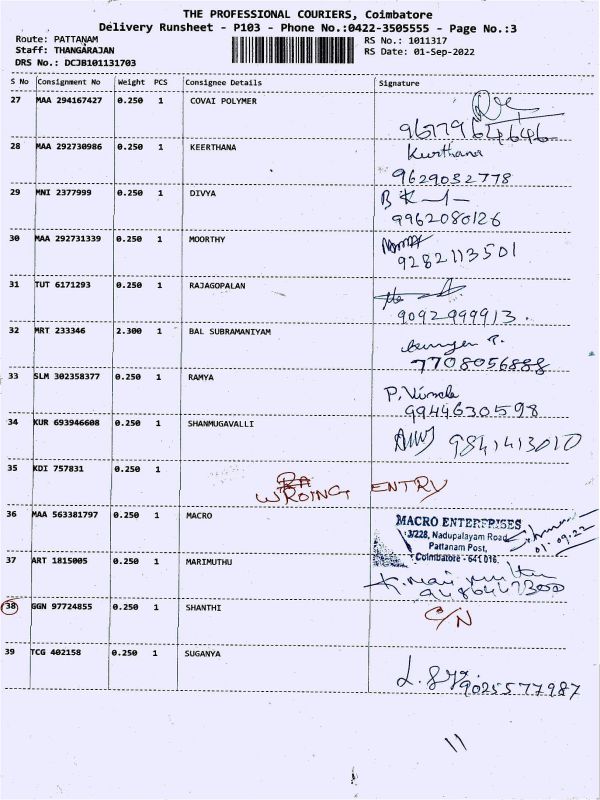 THE PROFESSIONAL COURIERS, Coimbatore
Delivery Runsheet - P103 - Phone No.:0422-3505555 - Page No.:3
Route: PATTANAM
RS No.: 1011317
Staff: THANGARAJAN
RS Date: 01-Sep-2022
DRS No.: DCJB101131703
S No Consignment No Weight PCS Consignee Details Signature
27 MAA 294167427 0.250 1 COVAI POLYMER
28 MAA 292730986 0.250 1 KEERTHANA Kurthana
9629032778
29 MNI 2377999 0.250 1 DIVYA
9962080126
30 MAA 292731339 0.250 1 MOORTHY
9282113501
31 TUT 6171293 0.250 1 RAJAGOPALAN
9092999913.
32 MRT 233346 2.300 1 BAL SUBRAMANIYAM
7708056888
33 SLM 302358377 0.250 1 RAMYA P. Vimala
9944630598
34 KUR 693946608 0.250 1 SHANMUGAVALLI 9841413010
35 KDI 757831 0.250 1
WROING ENTRY
36 MAA 563381797 0.250 1 MACRO MACRO ENTERPRISES
3/228, Nadupalayam Road,
Pattanam Post,
Coimbatore - 641 016.
01.09.22
37 ART 1815005 0.250 1 MARIMUTHU
38 GGN 97724855 0.250 1 SHANTHI C/N
39 TCG 402158 0.250 1 SUGANYA
9025577987
11